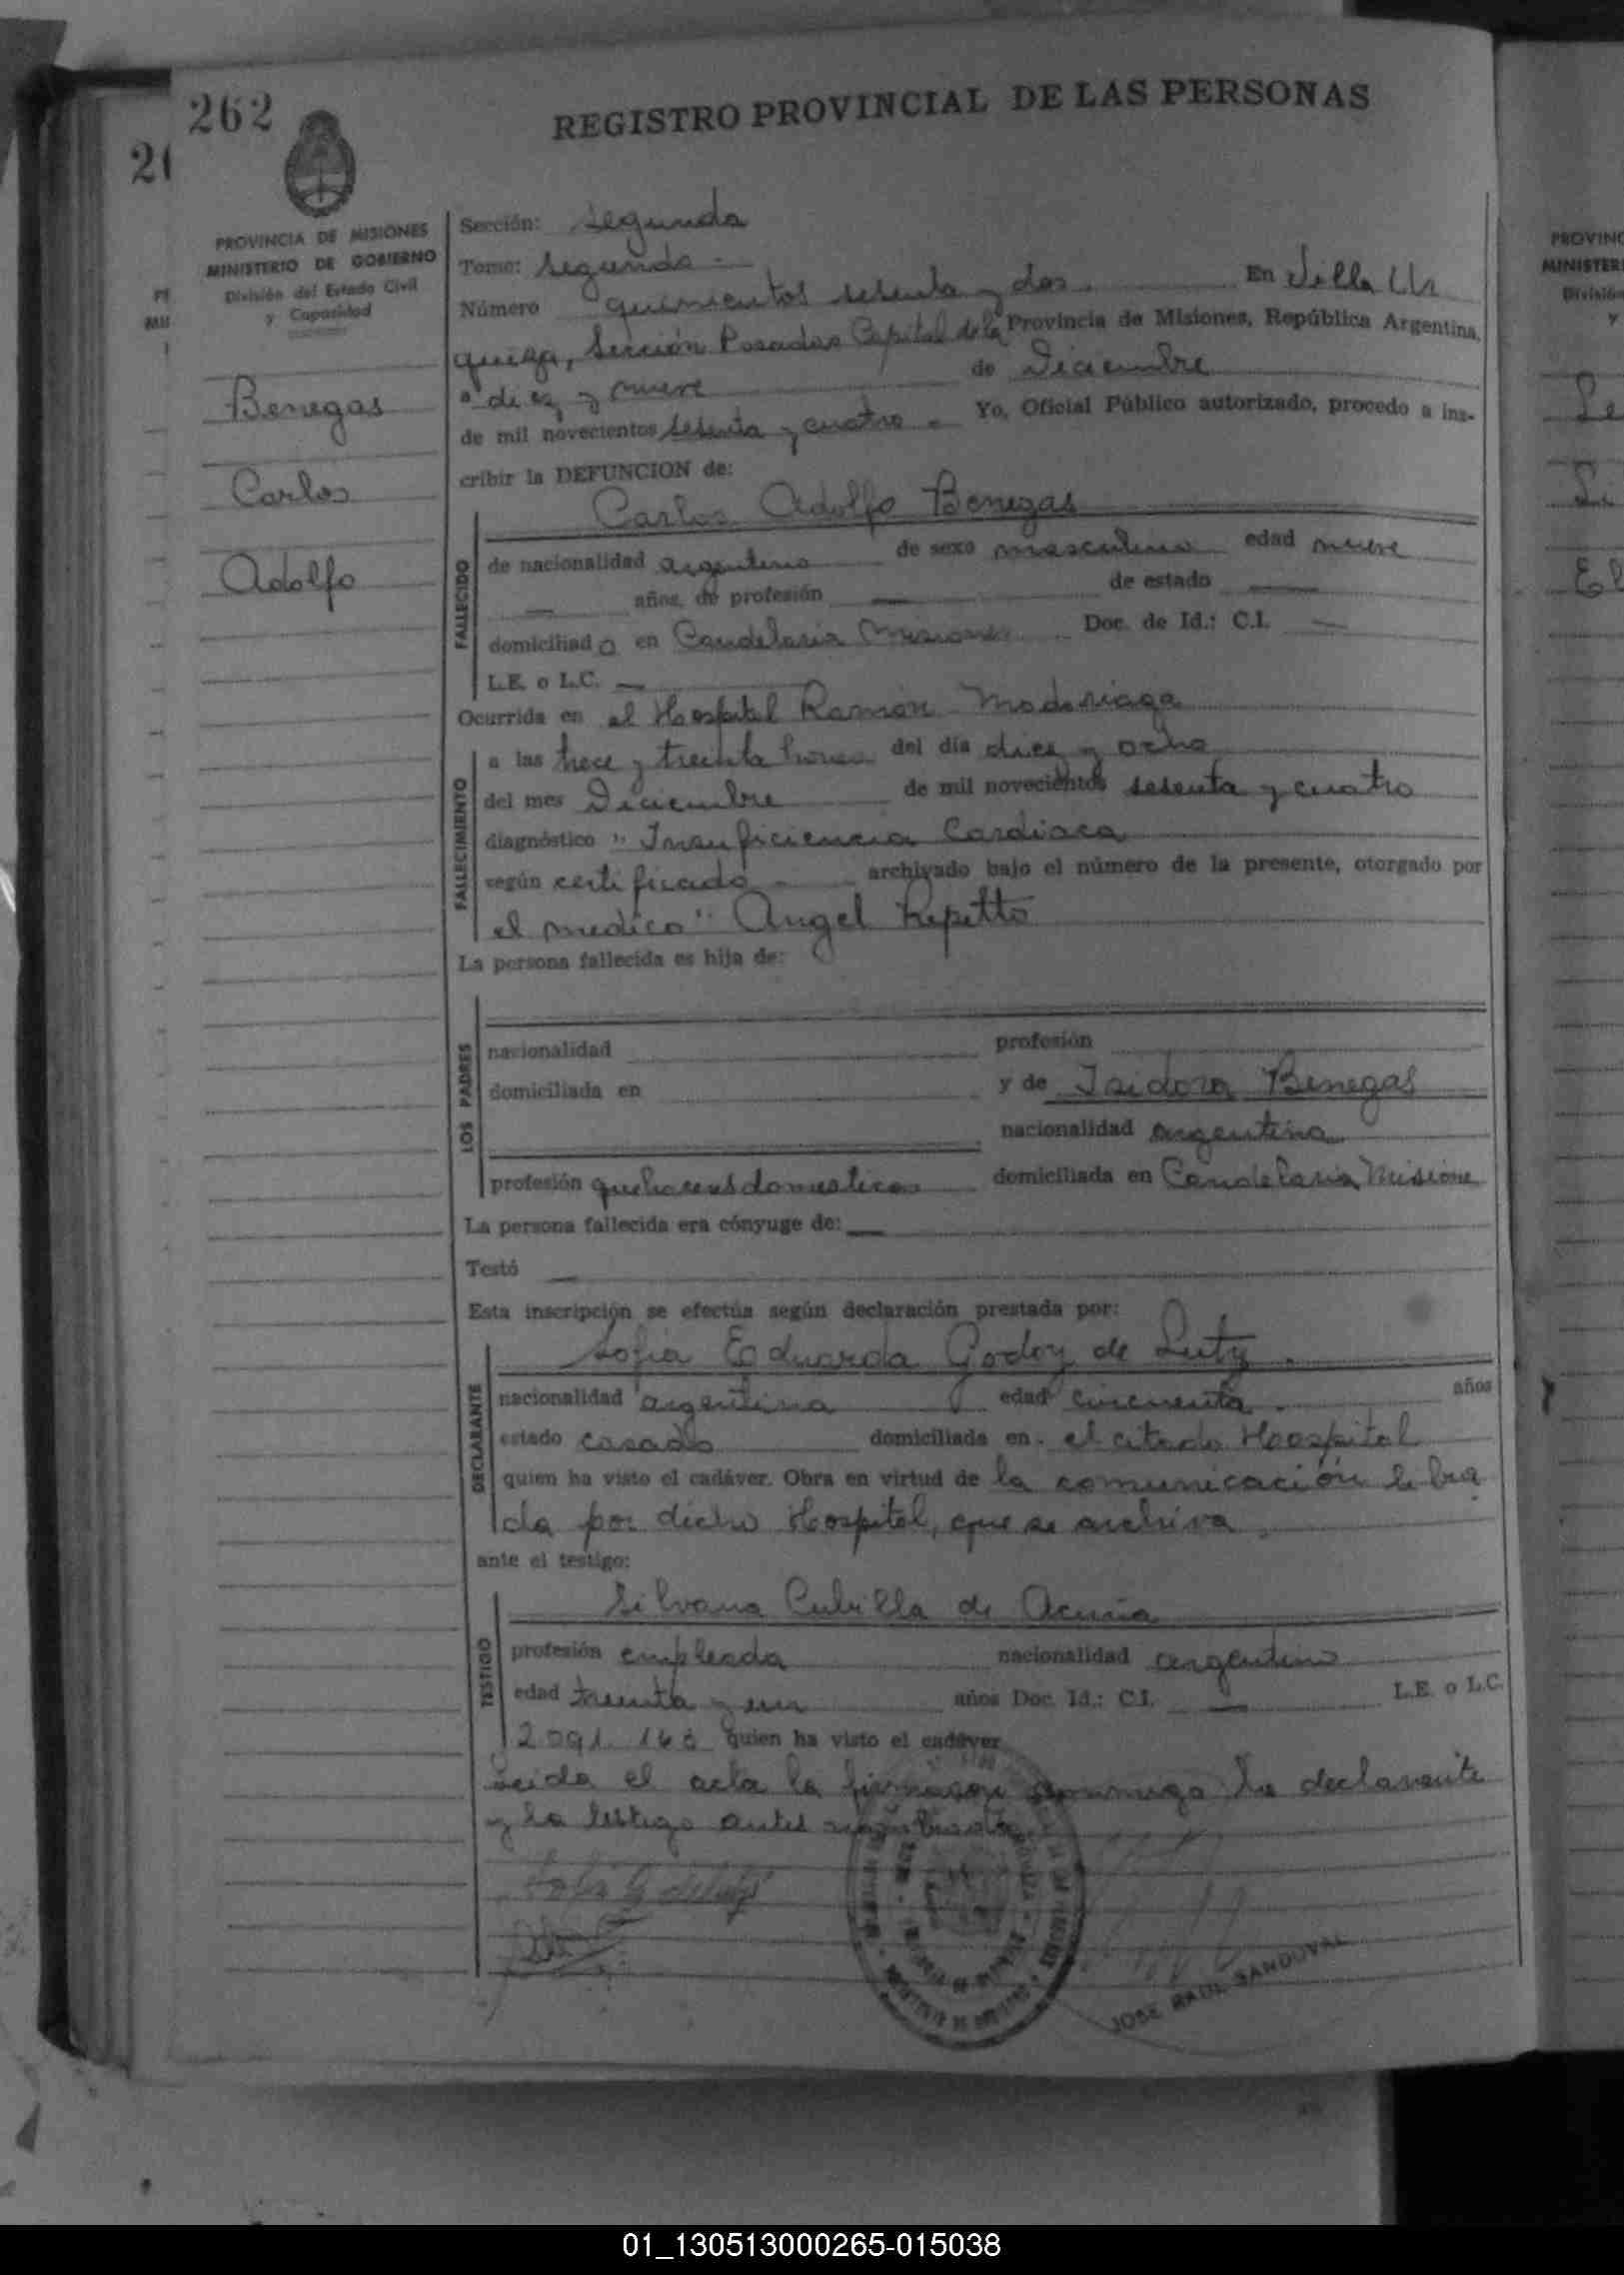 262
REGISTRO PROVINCIAL DE LAS PERSONAS
PROVINCIA DE MISIONES
MINISTERIO DE GOBIERNO
División del Estado Civil
y Capacidad
Benegas
Carlos
Adolfo
Sección: Segunda
Tomo: Segundo
Número quinientos sesenta y dos. En Villa Ur
quiza, Sección Posadas Capital de la Provincia de Misiones, República Argentina,
a diez y nueve de Diciembre
de mil novecientos sesenta y cuatro Yo, Oficial Público autorizado, procedo a ins-
cribir la DEFUNCION de:
Carlos Adolfo Benegas
FALLECIDO
de nacionalidad argentino de sexo masculino edad nueve
— años, de profesión — de estado —
domiciliado en Candelaria Misiones Doc. de Id.: C.I. —
L.E. o L.C. —
Ocurrida en el Hospital Ramón Madariaga
FALLECIMIENTO
a las trece y treinta horas del día diez y ocho
del mes Diciembre de mil novecientos sesenta y cuatro
diagnóstico "Insuficiencia Cardiaca
según certificado archivado bajo el número de la presente, otorgado por
el medico" Angel Repetto
La persona fallecida es hija de:
LOS PADRES
nacionalidad profesión
domiciliada en y de Isidora Benegas
nacionalidad argentina
profesión quehaceres domesticos domiciliada en Candelaria Misione
La persona fallecida era cónyuge de: —
Testó —
Esta inscripción se efectúa según declaración prestada por:
Sofia Eduarda Godoy de Lutz.
DECLARANTE
nacionalidad argentina edad cincuenta. años
estado casada domiciliada en el citado Hospital
quien ha visto el cadáver. Obra en virtud de la comunicación libra
da por dicho Hospital, que se archiva,
ante el testigo:
Silvana Cubilla de Acuña
TESTIGO
profesión empleada nacionalidad argentina
edad treinta y un años Doc. Id.: C.I. — L.E. o L.C.
2.091. quien ha visto el cadáver
Leida el acta la firmaron conmigo la declarante
y la testigo antes
JOSE RAUL SANDOVAL
PROVINC
MINISTER
División
y
01_130513000265-015038